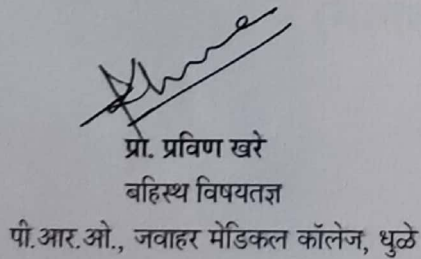 प्रो. प्रविण खरे
बहिस्थ विषयतज्ञ
पी.आर.ओ., जवाहर मेडिकल कॉलेज, धुळे